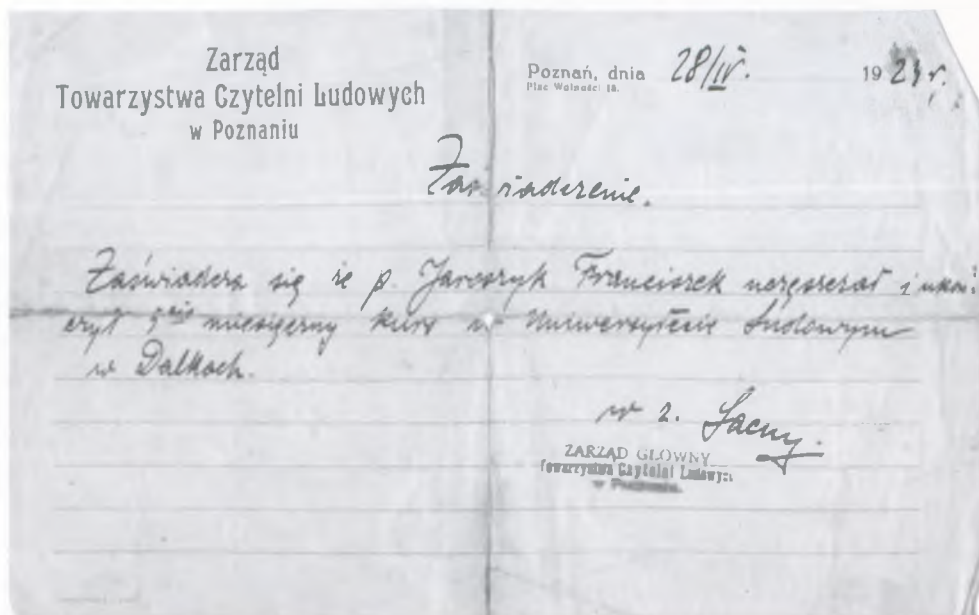 Zarząd
Towarzystwa Czytelni Ludowych
w Poznaniu
Poznań, dnia 28/IV. 1924 r.
Plac Wolności 18.
Zaświadczenie.
Zaświadcza się że p. Jarczyk Franciszek uczęszczał i ukoń-
czył 5cio miesięczny kurs w Uniwersytecie Ludowym
w Dalkach.
w z.
ZARZĄD GŁÓWNY
Towarzystwa Czytelni Ludowych
w Poznaniu.